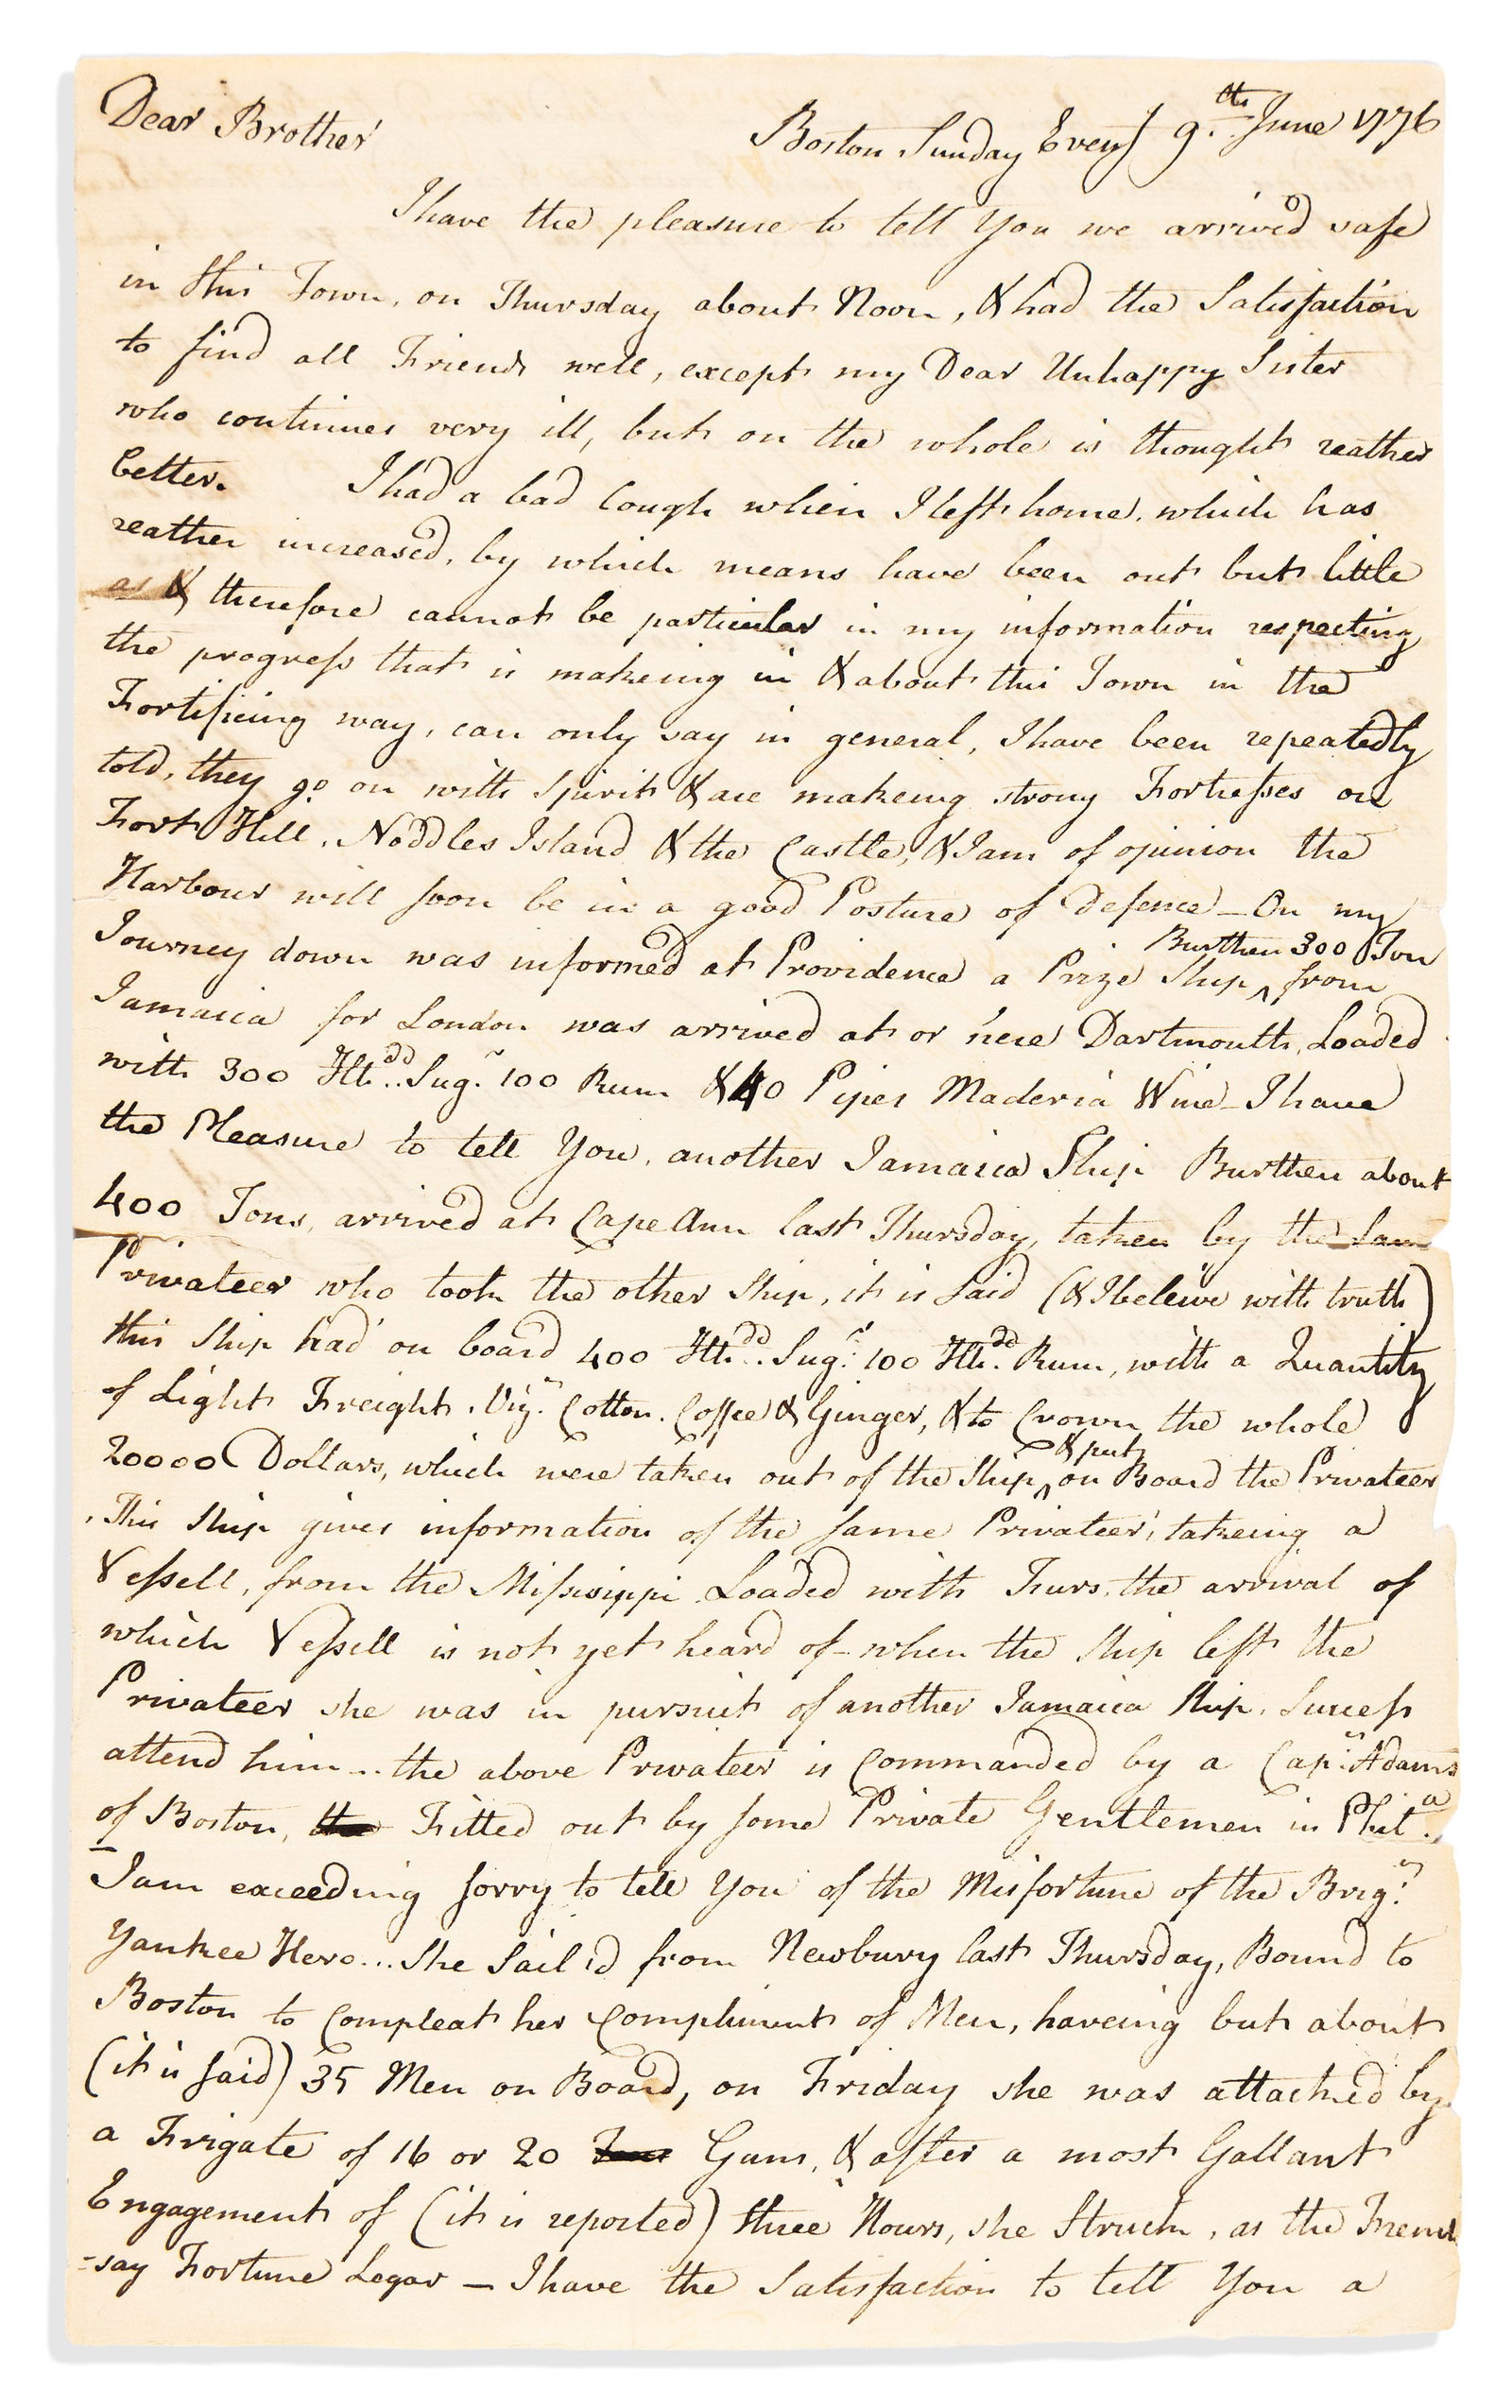 Dear Brother
Boston Sunday Eveng 9.th June 1776
I have the pleasure to tell You we arrived safe
in this Town, on Thursday about Noon, & had the Satisfaction
to find all Friends well, except my Dear Unhappy Sister
who continues very ill, but on the whole is thought reather
better. I had a bad Cough when I left home, which has
reather increased, by which means have been out but little
as & therefore cannot be particular in my information respecting
the progress that is makeing in & about this Town in the
Fortificing way, can only say in general, I have been repeatedly
told, they go on with Spirit & are makeing strong Fortresses on
Fort Hill, Noddles Island & the Castle, & I am of opinion the
Harbour will soon be in a good Posture of Defence – On my
Journey down was informed at Providence a Prize Ship ^ Burthen 300 Ton from
Jamaica for London was arrived at or nere Dartmouth, Loaded
with 300 Hhdd.. Sugr. 100 Rum & 40 Pipes Maderia Wine – I have
the Pleasure to tell You, another Jamaica Ship Burthen about
400 Tons, arrived at Cape Ann last Thursday, taken by the Same
Privateer who took the other Ship, it is Said (& I beleive with truth)
this Ship had on board 400 Hhdd.. Sugr. 100 Hhdd. Rum, with a Quantity
of Light Freight, Vizt. Cotton, Coffee & Ginger, & to Crown the whole
20000 Dollars, which were taken out of the Ship ^ & put on Board the Privateer
, This Ship gives information of the same Privateer, takeing a
Vessell, from the Missisippi Loaded with Furs, the arrival of
which Vessell is not yet heard of – when the Ship left the
Privateer she was in pursuit of another Jamaica Ship, Success
attend him... the above Privateer is Commanded by a Capn. Adams
of Boston, Fitted out by some Private Gentlemen in Phila.
I am exceeding sorry to tell You of the Misfortune of the Brign.
Yankee Hero... She Sail'd from Newbury last Thursday, Bound to
Boston to Compleat her Compliment of Men, haveing but about
(it is said) 35 Men on Board, on Friday she was attack'd by
a Frigate of 16 or 20 Guns, & after a most Gallant
Engagement of (it is reported) three Hours, she Struck, as the French
-say Fortune Legar – I have the Satisfaction to tell You a